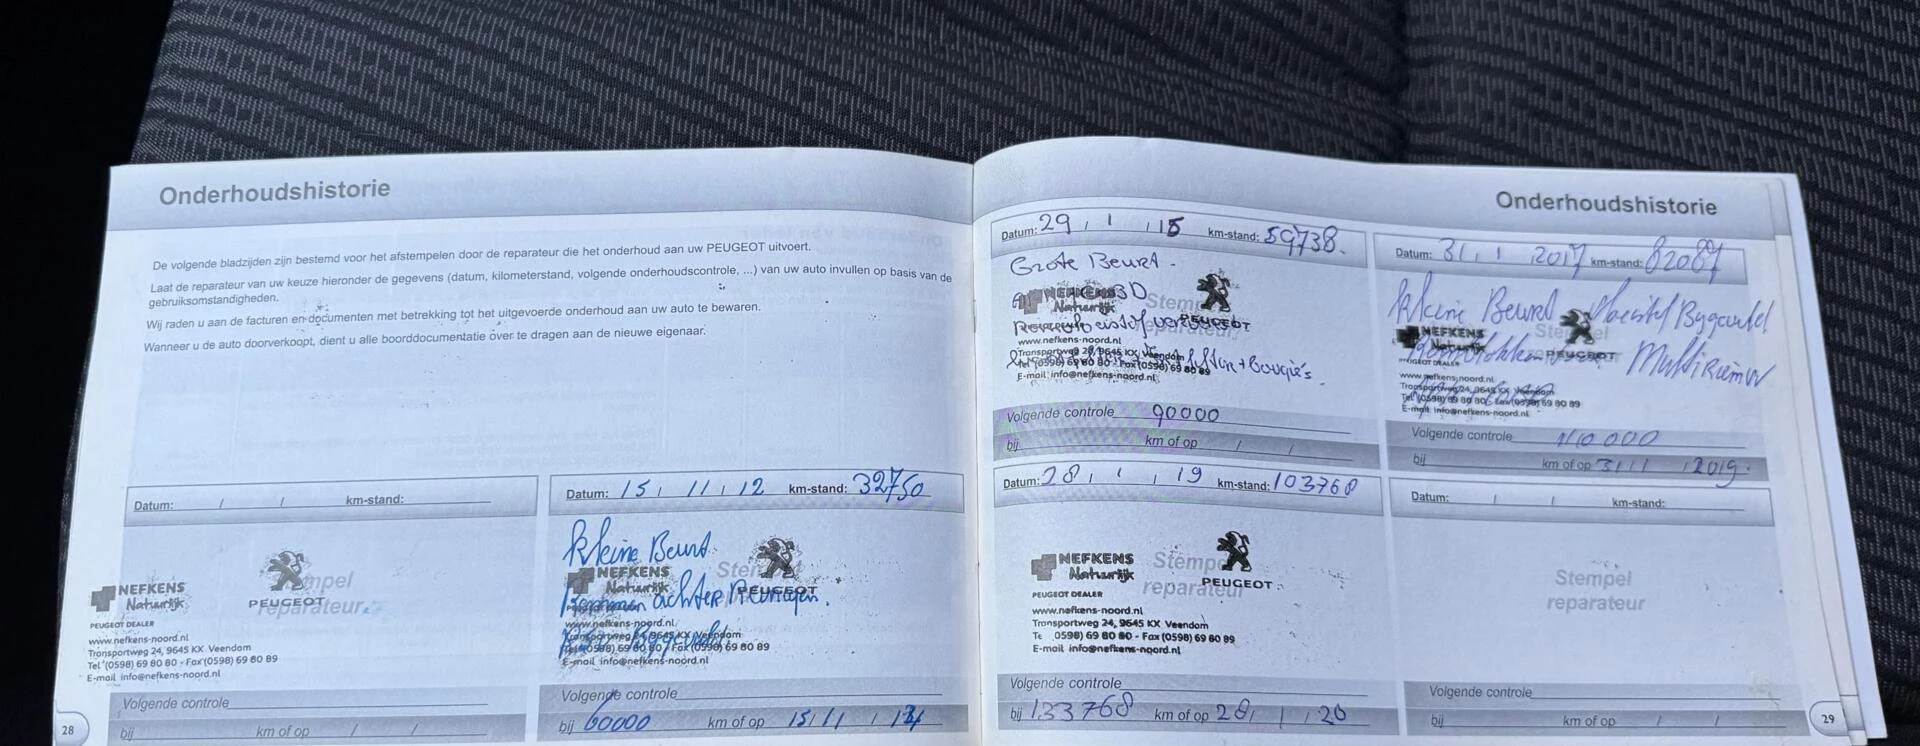 Onderhoudshistorie
De volgende bladzijden zijn bestemd voor het afstempelen door de reparateur die het onderhoud aan uw PEUGEOT uitvoert.
Laat de reparateur van uw keuze hieronder de gegevens (datum, kilometerstand, volgende onderhoudscontrole, ...) van uw auto invullen op basis van de
gebruiksomstandigheden.
Wij raden u aan de facturen en documenten met betrekking tot het uitgevoerde onderhoud aan uw auto te bewaren.
Wanneer u de auto doorverkoopt, dient u alle boorddocumentatie over te dragen aan de nieuwe eigenaar.
Datum: / / km-stand:
Stempel
reparateur
NEFKENS
Natuurlijk
PEUGEOT
PEUGEOT DEALER
www.nefkens-noord.nl
Transportweg 24, 9645 KX Veendam
Tel (0598) 69 80 80 - Fax (0598) 69 80 89
E-mail info@nefkens-noord.nl
Volgende controle
bij km of op / /
28
Datum: 15 / 11 / 12 km-stand: 32750
Kleine Beurt
NEFKENS
Natuurlijk
PEUGEOT
Remmen achter Reinigen.
www.nefkens-noord.nl
Transportweg 24, 9645 KX Veendam
Tel (0598) 69 80 80 / Fax (0598) 69 80 89
E-mail info@nefkens-noord.nl
Volgende controle
bij 60000 km of op 15 / 11 /
Onderhoudshistorie
Datum: 29 / 1 / 15 km-stand: 59738.
Grote Beurt.
NEFKENS
Natuurlijk
Stempel
PEUGEOT
www.nefkens-noord.nl
Transportweg 24, 9645 KX Veendam
Tel (0598) 69 80 80 - Fax (0598) 69 80 89
+ Bougie's.
E-mail info@nefkens-noord.nl
Volgende controle 90000
bij km of op / /
Datum: 31 / 1 / 2017 km-stand: 82087
Kleine Beurt Vloeistof Bygevuld
NEFKENS
Natuurlijk
Stempel
PEUGEOT
Multi Riem
PEUGEOT DEALER
www.nefkens-noord.nl
Transportweg 24, 9645 KX Veendam
Tel (0598) 69 80 80 - Fax (0598) 69 80 89
E-mail info@nefkens-noord.nl
Volgende controle 110000
bij km of op 31 / 1 / 2019.
Datum: 28 / 1 / 19 km-stand: 103768
NEFKENS
Natuurlijk
Stempel
reparateur
PEUGEOT
PEUGEOT DEALER
www.nefkens-noord.nl
Transportweg 24, 9645 KX Veendam
Te 0598) 69 80 80 - Fax (0598) 69 80 89
E-mail info@nefkens-noord.nl
Volgende controle
bij 133768 km of op 28 / 1 / 20
Datum: / / km-stand:
Stempel
reparateur
Volgende controle
bij km of op / /
29